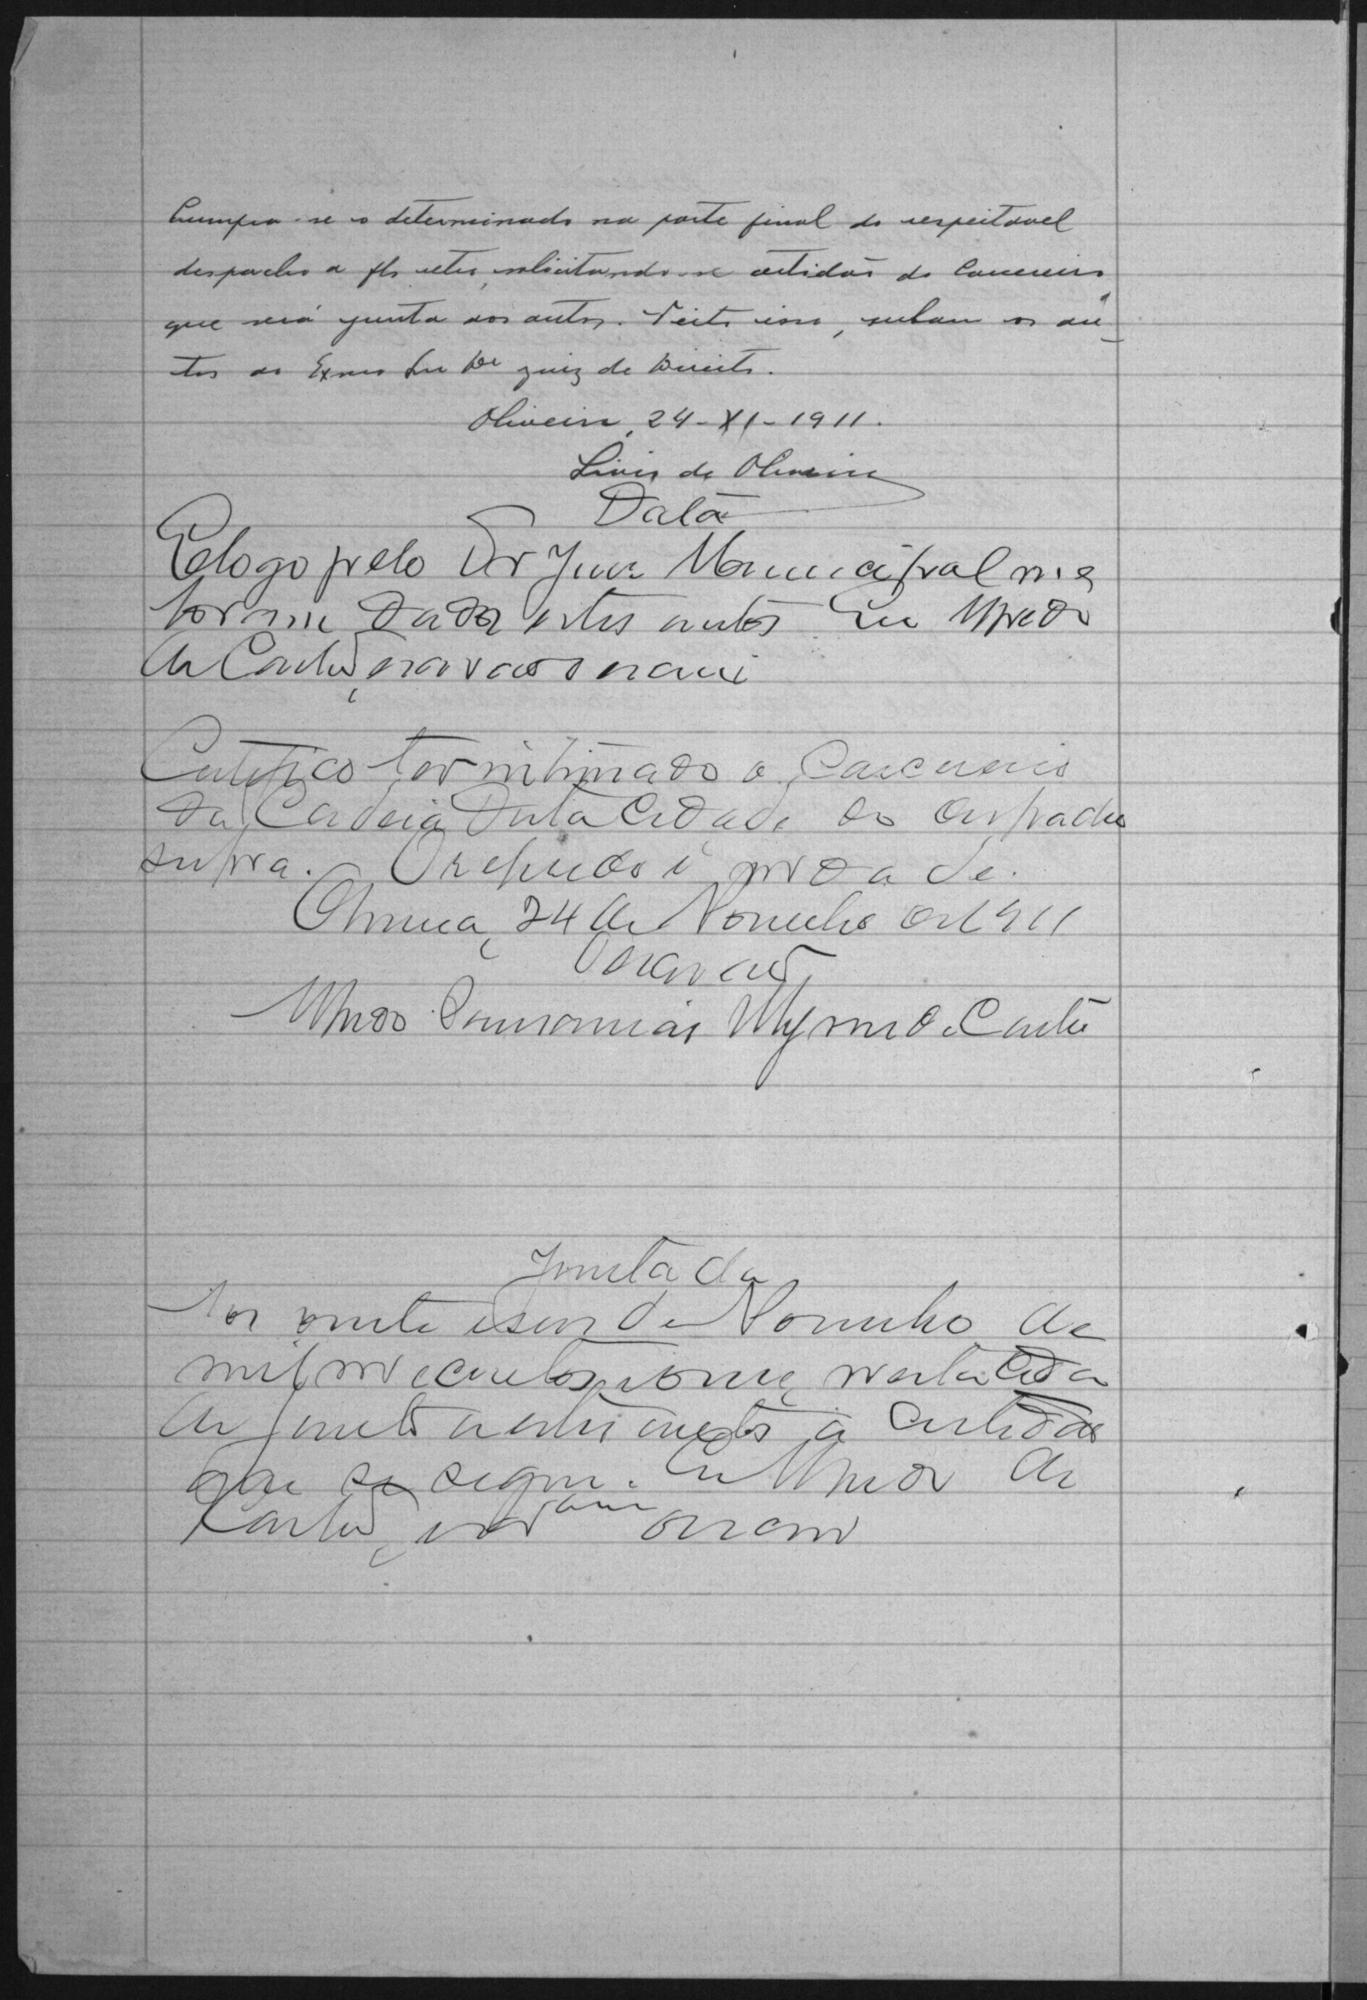 Cumpra-se o determinado na parte final do respeitavel
despacho a fls sete, solicitando-se certidão do Carcereiro
que será junta aos autos. Feito isso, subam os au-
tos ao Exmo Snr Dr Juiz de Direito.
Oliveira, 24-XI-1911.
Livio de Oliveira
Data
E logo pelo Dr Juiz Municipal me
foram dados estes autos Eu
de Castro, escrivão o escrevi
Certifico ter intimado o Carcereiro
da Cadeia desta Cidade do despacho
supra. O referido é verdade.
Oliveira, 24 de Novembro de 1911
O escrivão,
de Castro
Juntada
Aos vinte e seis de Novembro de
mil novecentos e onze, nesta cida
de junto a estes autos a certidão
que se segue. Eu de
Castro, escrivão o escrevi